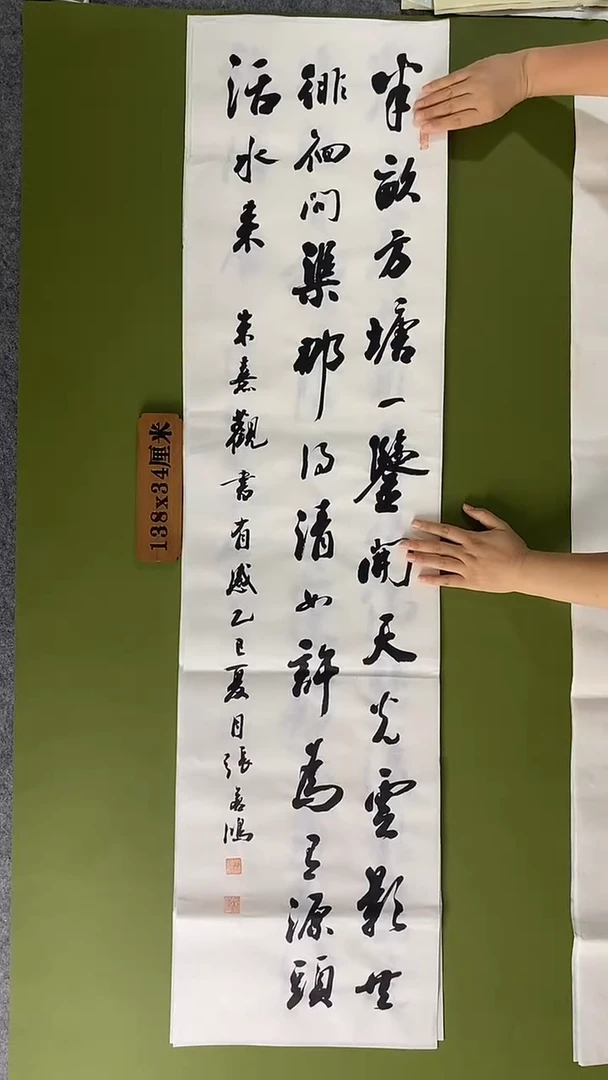 半畝方塘一鑒開天光雲影共
徘徊問渠那得清如許為有源頭
活水來
朱熹觀書有感乙巳夏月張善鴻
138x34厘米